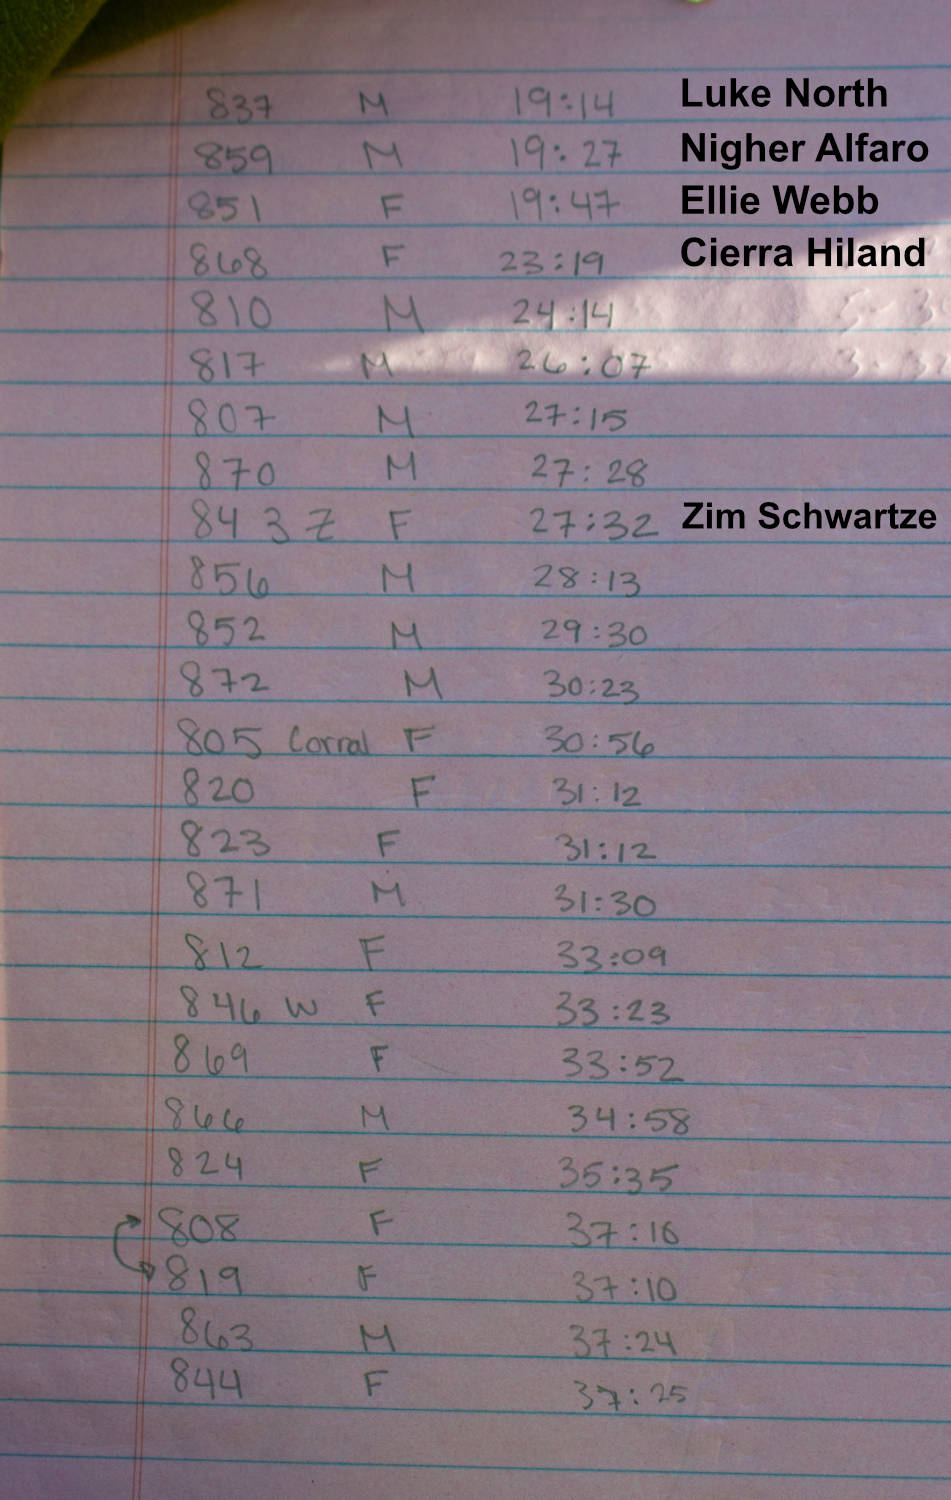 837 M 19:14 Luke North
859 M 19:27 Nigher Alfaro
851 F 19:47 Ellie Webb
868 F 23:19 Cierra Hiland
810 M 24:14
817 M 26:07
807 M 27:15
870 M 27:28
843 Z F 27:32 Zim Schwartze
856 M 28:13
852 M 29:30
872 M 30:23
805 Corral F 30:56
820 F 31:12
823 F 31:12
871 M 31:30
812 F 33:09
846 W F 33:23
869 F 33:52
866 M 34:58
824 F 35:35
808 F 37:16
819 F 37:10
863 M 37:24
844 F 37:25